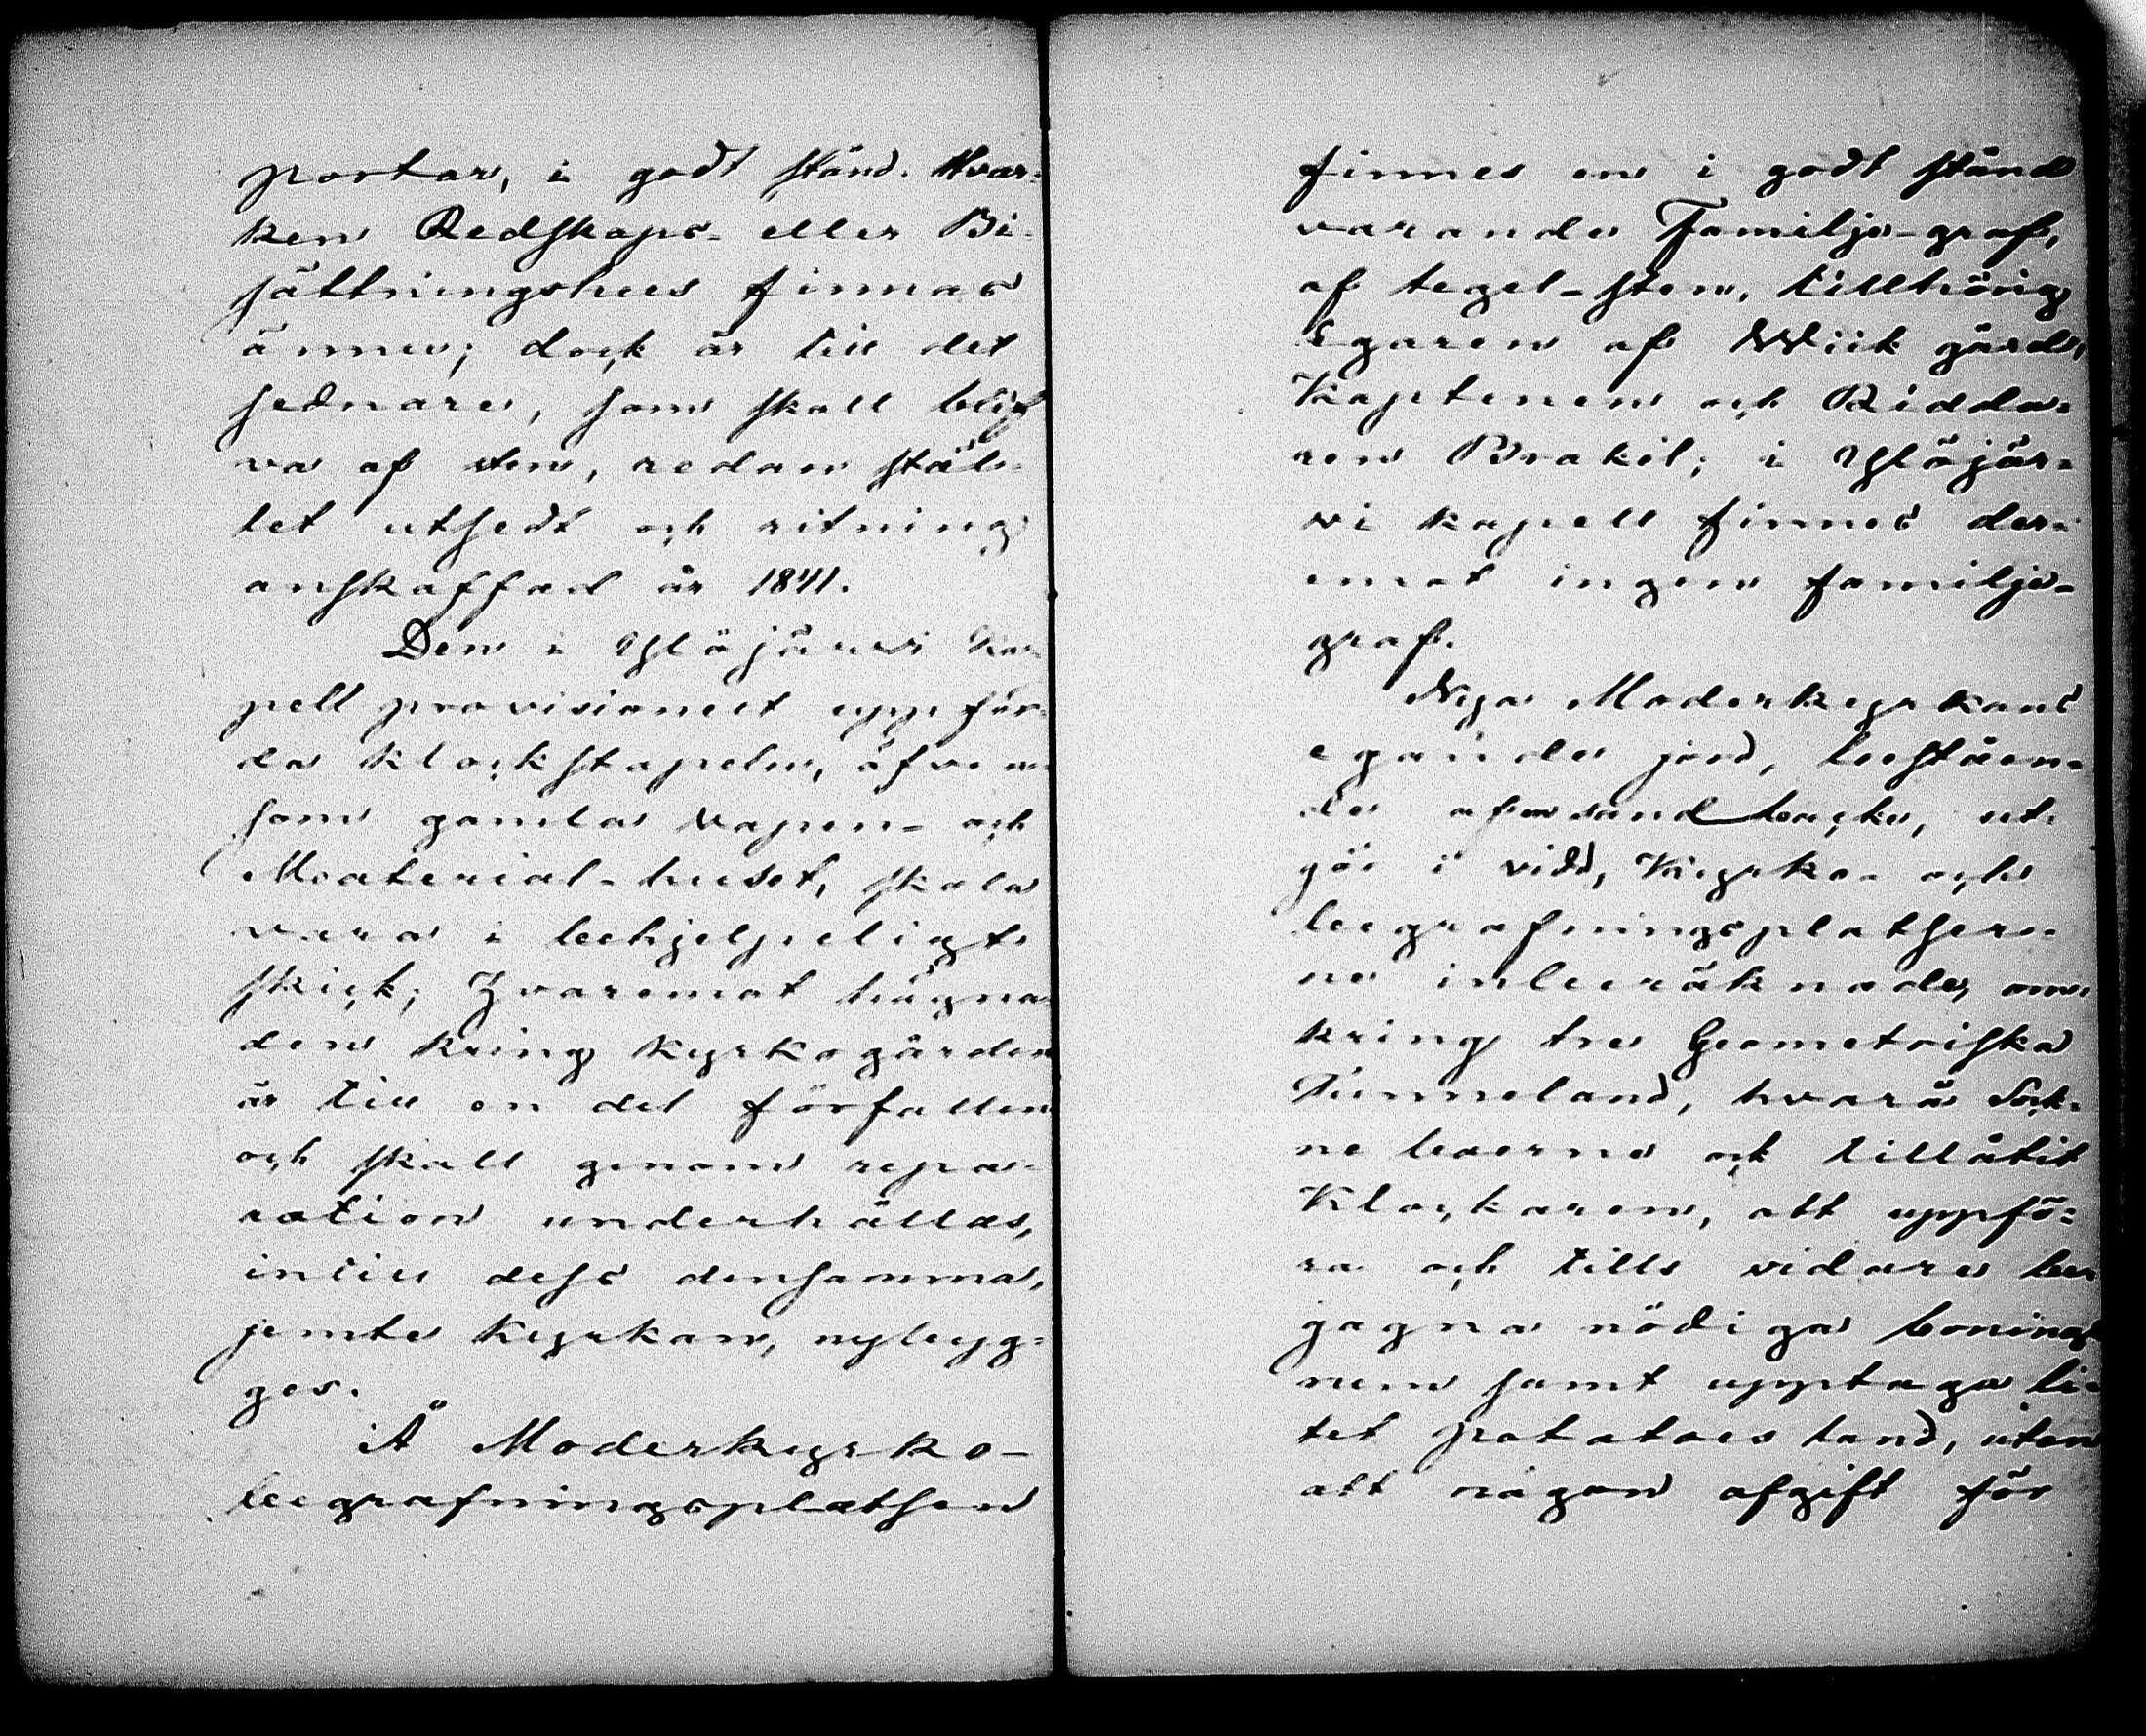 portar, i godt stånd. Hvar-
ken Redskaps- eller Bi-
sättningshus finnas
ännu; dock är till det
sednare, som skall blif-
va af sten, redan stäl-
let utsedt och ritning
anskaffad år 1841.
Den i Ylöjärvi Ka-
pell provisionelt uppför-
da klockstapeln, äfven-
som gamla Vapen- och
Material-huset, skola
vara i behjelpeligt
skick; hvaremot hägna-
den kring kyrkogården
är till en del förfallen
och skall genom repa-
ration underhållas,
intill dess densamma,
jemte kyrkan, nybyg-
ges.
Å Moderkyrko-
begrafningsplatsen
finnes en i godt stånd
varande Familje-graf,
af tegel-sten, tillhörig
Egaren af Wiik gård,
Kaptenen och Ridda-
ren Brakel; i Ylöjär-
vi kapell finnes der-
emot ingen familje-
graf.
Nya Moderkyrkans
egande jord, bestäen-
de af en sandbacke, ut-
gör i vidd, Kyrko- och
begrafningsplatser-
ne inberäknade, om-
kring tre Geometriska
Tunneland, hvarå Sock-
neboerne ock tillåtit
Klockaren, att uppfö-
ra och tills vidare be-
gagna nödiga bonings-
rum samt upptaga li-
tet potatoes land, utan
att någon afgift för